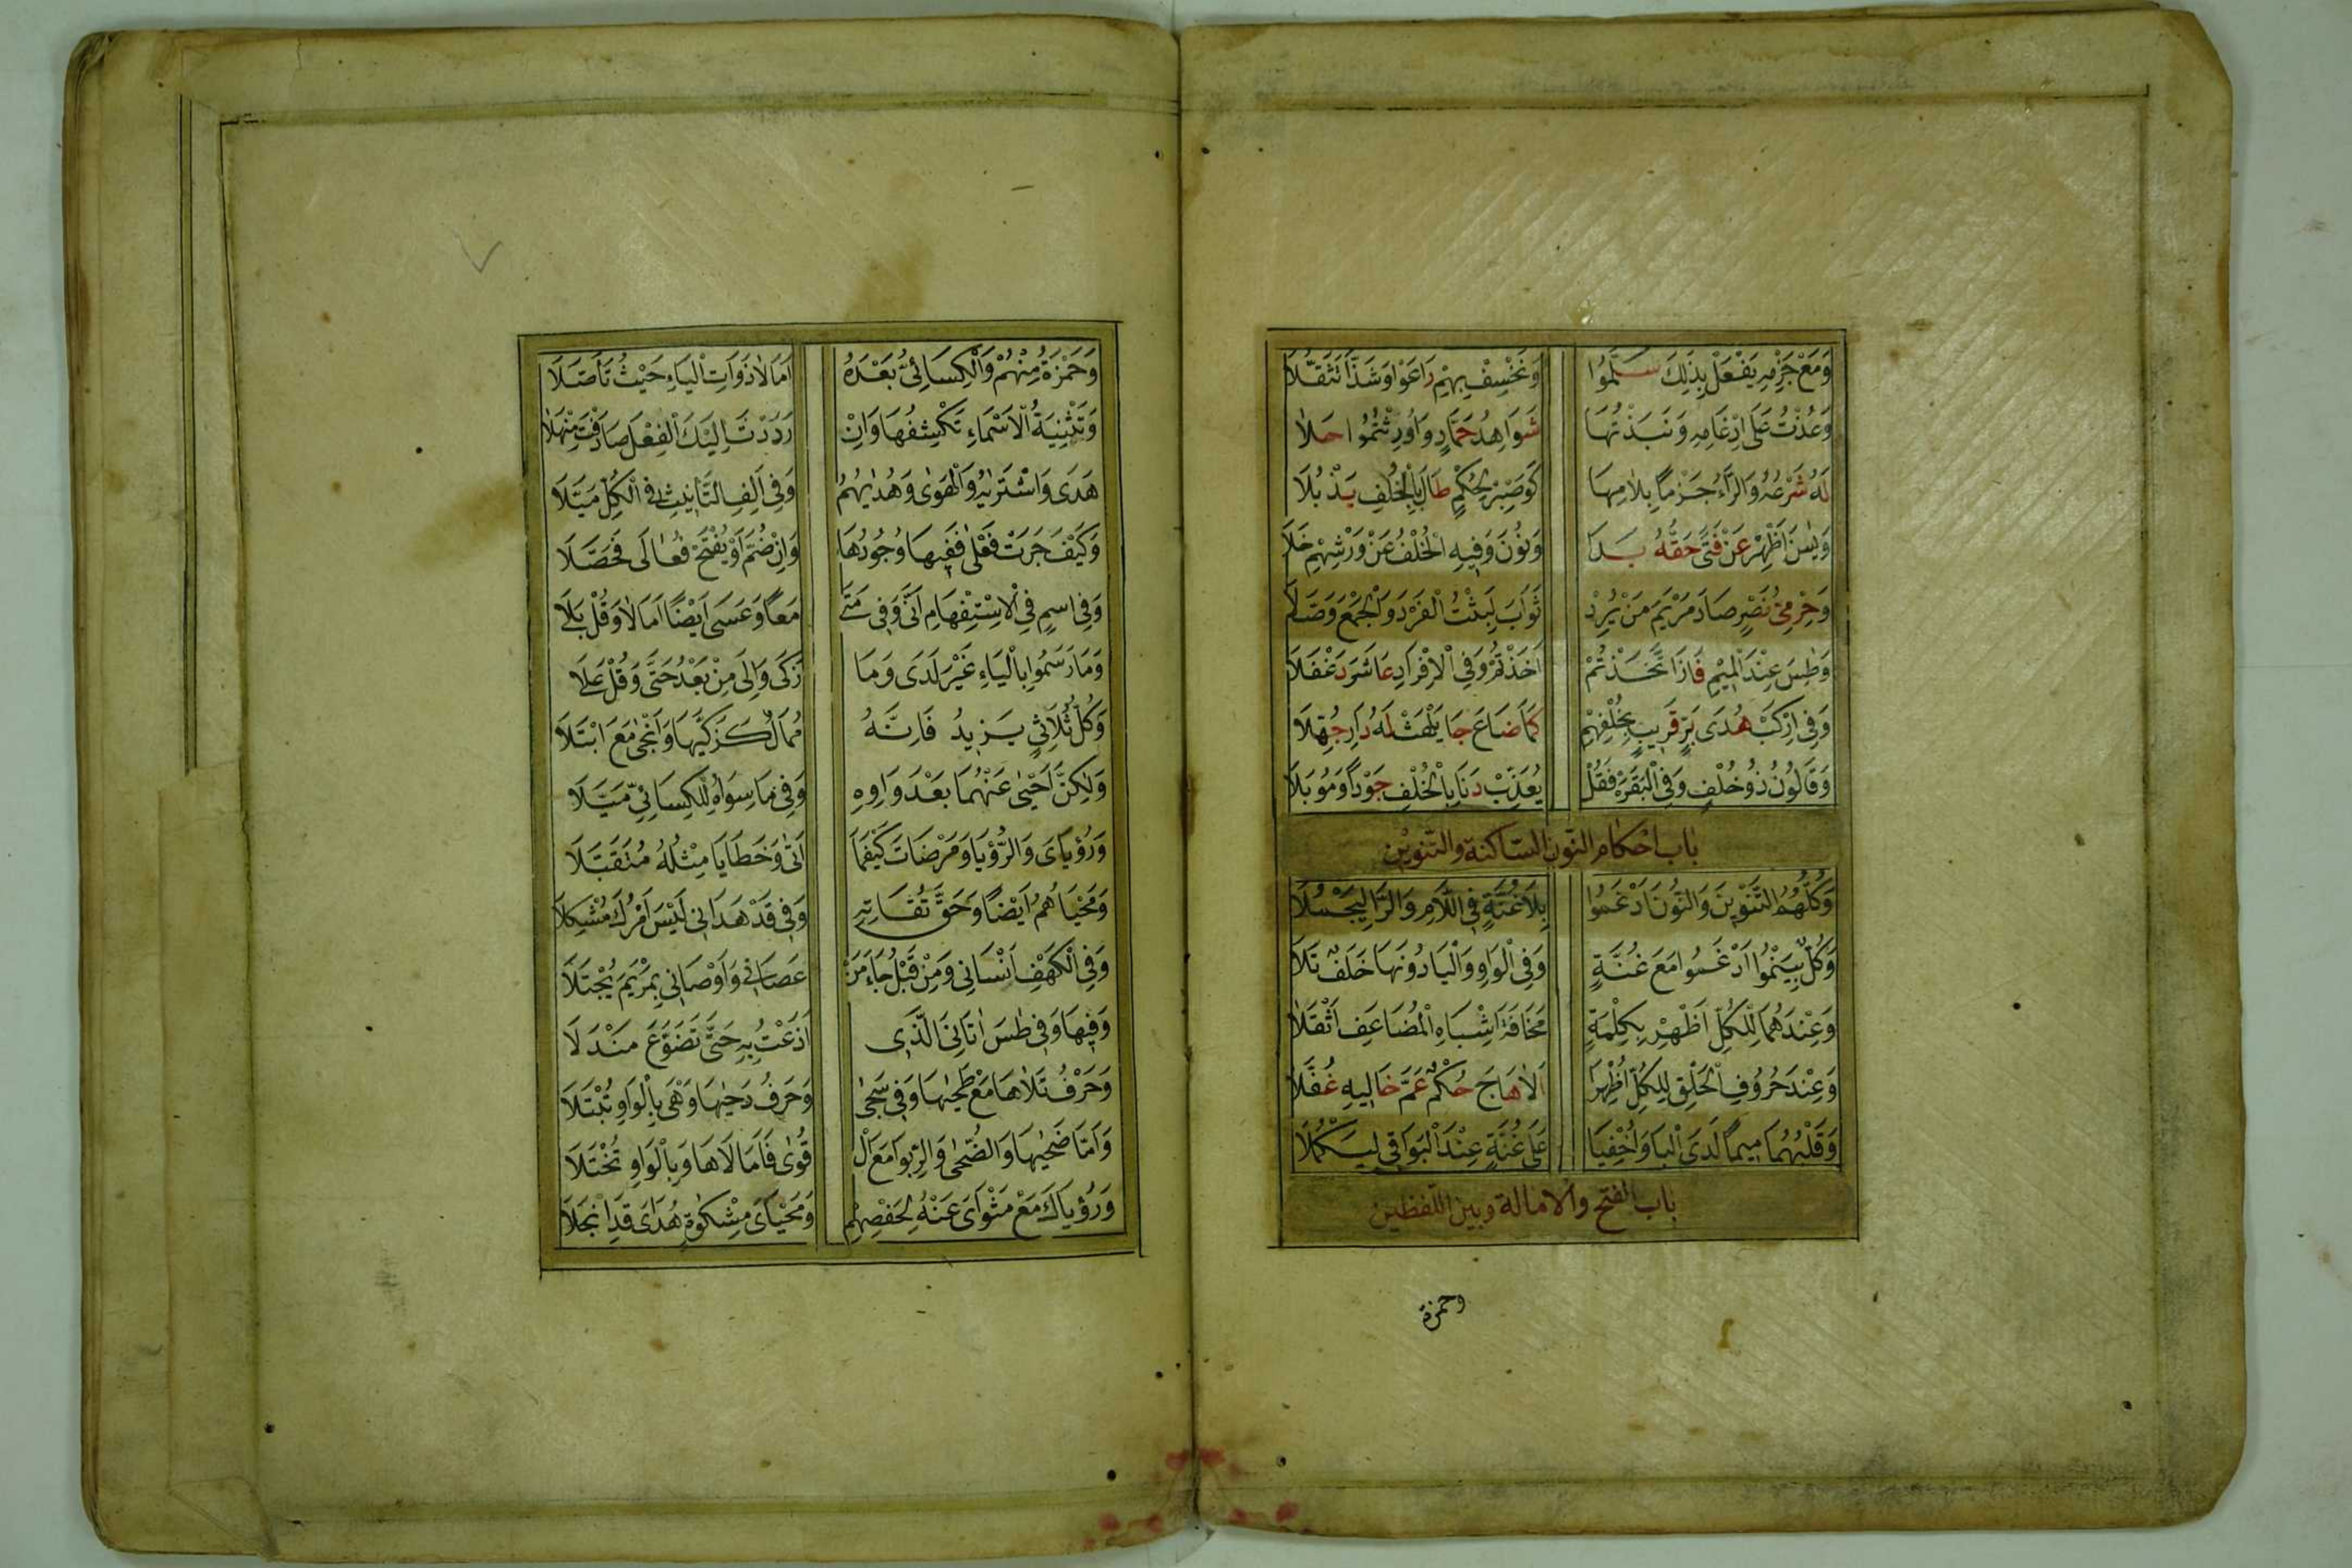 وَمَعْ جَزْمِهِ يَفْعَلْ بِذٰلِكَ سَلَّمُوا وَنَخْسِفْ بِهِمْ رَاعَوْا وَشَذَّا تَثَقُّلَا
وَعُذْتُ عَلَى اِدْغَامِهِ وَنَبَذْتُهَا شَوَاهِدُ حَمَّادٍ وَاُورِثْتُمُوا حَلَا
لَهُ شَرْعُهُ وَالرَّاءُ جَزْمًا بِلَامِهَا كَوَصْبِرْ لِحُكْمِ طَالَ بِالْخُلْفِ يَذْبُلَا
وَيٰسٓ اَظْهِرْ عَنْ فَتًى حَقُّهُ بَدَا وَنُونَ وَفِيهِ الْخُلْفُ عَنْ وَرْشِهِمْ خَلَا
وَحِرْمِيُّ نَصْرٍ صَادَ مَرْيَمَ مَنْ يُرِدْ ثَوَابَ لَبِثْتُ الْفَرْدَ وَالْجَمْعَ وَصَّلَا
وَطٰسٓ عِنْدَ الْمِيمِ فَازَ اتَّخَذْتُمْ اَخَذْتُمْ وَفِي الْاِفْرَادِ عَاشَرَ دَغْفَلَا
وَفِي ارْكَبْ هُدَى بَرٍّ قَرِيبٍ بِخُلْفِهِمْ كَمَا ضَاعَ جَا يَلْهَثْ لَهُ دَارِ جُهَّلَا
وَقَالُونُ ذُو خُلْفٍ وَفِي الْبَقَرَهْ فَقُلْ يُعَذِّبْ دَنَا بِالْخُلْفِ جَوْدًا وَمُوبِلَا
باب احكام النون الساكنة والتنوين
وَكُلُّهُمُ التَّنْوِينَ وَالنُّونَ اَدْغَمُوا بِلَا غُنَّةٍ فِي اللَّامِ وَالرَّا لِيَجْمُلَا
وَكُلٌّ بِيَنْمُوا اَدْغَمُوا مَعَ غُنَّةٍ وَفِي الْوَاوِ وَالْيَا دُونَهَا خَلَفٌ تَلَا
وَعِنْدَهُمَا لِلْكُلِّ اَظْهِرْ بِكِلْمَةٍ مَخَافَةَ اِشْبَاهِ الْمُضَاعَفِ اَثْقَلَا
وَعِنْدَ حُرُوفِ الْحَلْقِ لِلْكُلِّ اُظْهِرَا اَلَا هَاجَ حُكْمٌ عَمَّ خَالِيهِ غُفَّلَا
وَقَلْبُهُمَا مِيمًا لَدَى الْبَا وَاُخْفِيَا عَلَى غُنَّةٍ عِنْدَ الْبَوَاقِي لِيَكْمُلَا
باب الفتح والامالة وبين اللفظين
وحمزة
وَحَمْزَةُ مِنْهُمْ وَالْكِسَائِيُّ بَعْدَهُ اَمَالَا ذَوَاتِ الْيَاءِ حَيْثُ تَاَصَّلَا
وَتَثْنِيَةُ الْاَسْمَاءِ تَكْشِفُهَا وَاِنْ رَدَدْتَ اِلَيْكَ الْفِعْلَ صَادَفْتَ مَنْهَلَا
هَدَى وَاشْتَرٰيهُ وَالْهَوٰى وَهُدٰيهُمُ وَفِي اَلِفِ التَّانِيثِ فِي الْكُلِّ مَيَّلَا
وَكَيْفَ جَرَتْ فَعْلٰى فَفِيهَا وُجُودُهَا وَاِنْ ضُمَّ اَوْ يُفْتَحْ فُعَالٰى فَحَصِّلَا
وَفِي اسْمٍ فِي الْاِسْتِفْهَامِ اَنّٰى وَفِي مَتٰى مَعًا وَعَسَى اَيْضًا اَمَالَا وَقُلْ بَلٰى
وَمَا رَسَمُوا بِالْيَاءِ غَيْرَ لَدَى وَمَا زَكٰى وَاِلٰى مِنْ بَعْدُ حَتّٰى وَقُلْ عَلٰى
وَكُلُّ ثُلَاثِيٍّ يَزِيدُ فَاِنَّهُ مُمَالٌ كَزَكّٰيهَا وَاَنْجٰى مَعَ ابْتَلٰى
وَلٰكِنَّ اَحْيٰى عَنْهُمَا بَعْدَ وَاوِهِ وَفِي مَا سِوَاهُ لِلْكِسَائِيِّ مُيِّلَا
وَرُؤْيَايَ وَالرُّؤْيَا وَمَرْضَاتَ كَيْفَمَا اَتٰى وَخَطَايَا مِثْلُهُ مُتَقَبَّلَا
وَمَحْيَاهُمُ اَيْضًا وَحَقَّ تُقَاتِهِ وَفِي قَدْ هَدَانِي لَيْسَ اَمْرُكَ مُشْكِلَا
وَفِي الْكَهْفِ اَنْسَانِي وَمِنْ قَبْلُ جَاءَ مَنْ عَصَانِي وَاَوْصَانِي بِمَرْيَمَ يُجْتَلَا
وَفِيهَا وَفِي طٰسٓ اٰتَانِيَ الَّذِي اَذَعْتُ بِهِ حَتَّى تَضَوَّعَ مَنْدَلَا
وَحَرْفُ تَلَاهَا مَعْ طَحٰيهَا وَفِي سَجٰى وَحَرْفُ دَحٰيهَا وَهْيَ بِالْوَاوِ تُبْتَلَا
وَاَمَّا ضُحٰيهَا وَالضُّحٰى وَالرِّبٰوا مَعَ الْ قُوٰى فَاَمَالَاهَا وَبِالْوَاوِ تُخْتَلَا
وَرُؤْيَاكَ مَعْ مَثْوَايَ عَنْهُ لِحَفْصِهِمْ وَمَحْيَايَ مِشْكٰوةٍ هُدَايَ قَدِ انْجَلَا